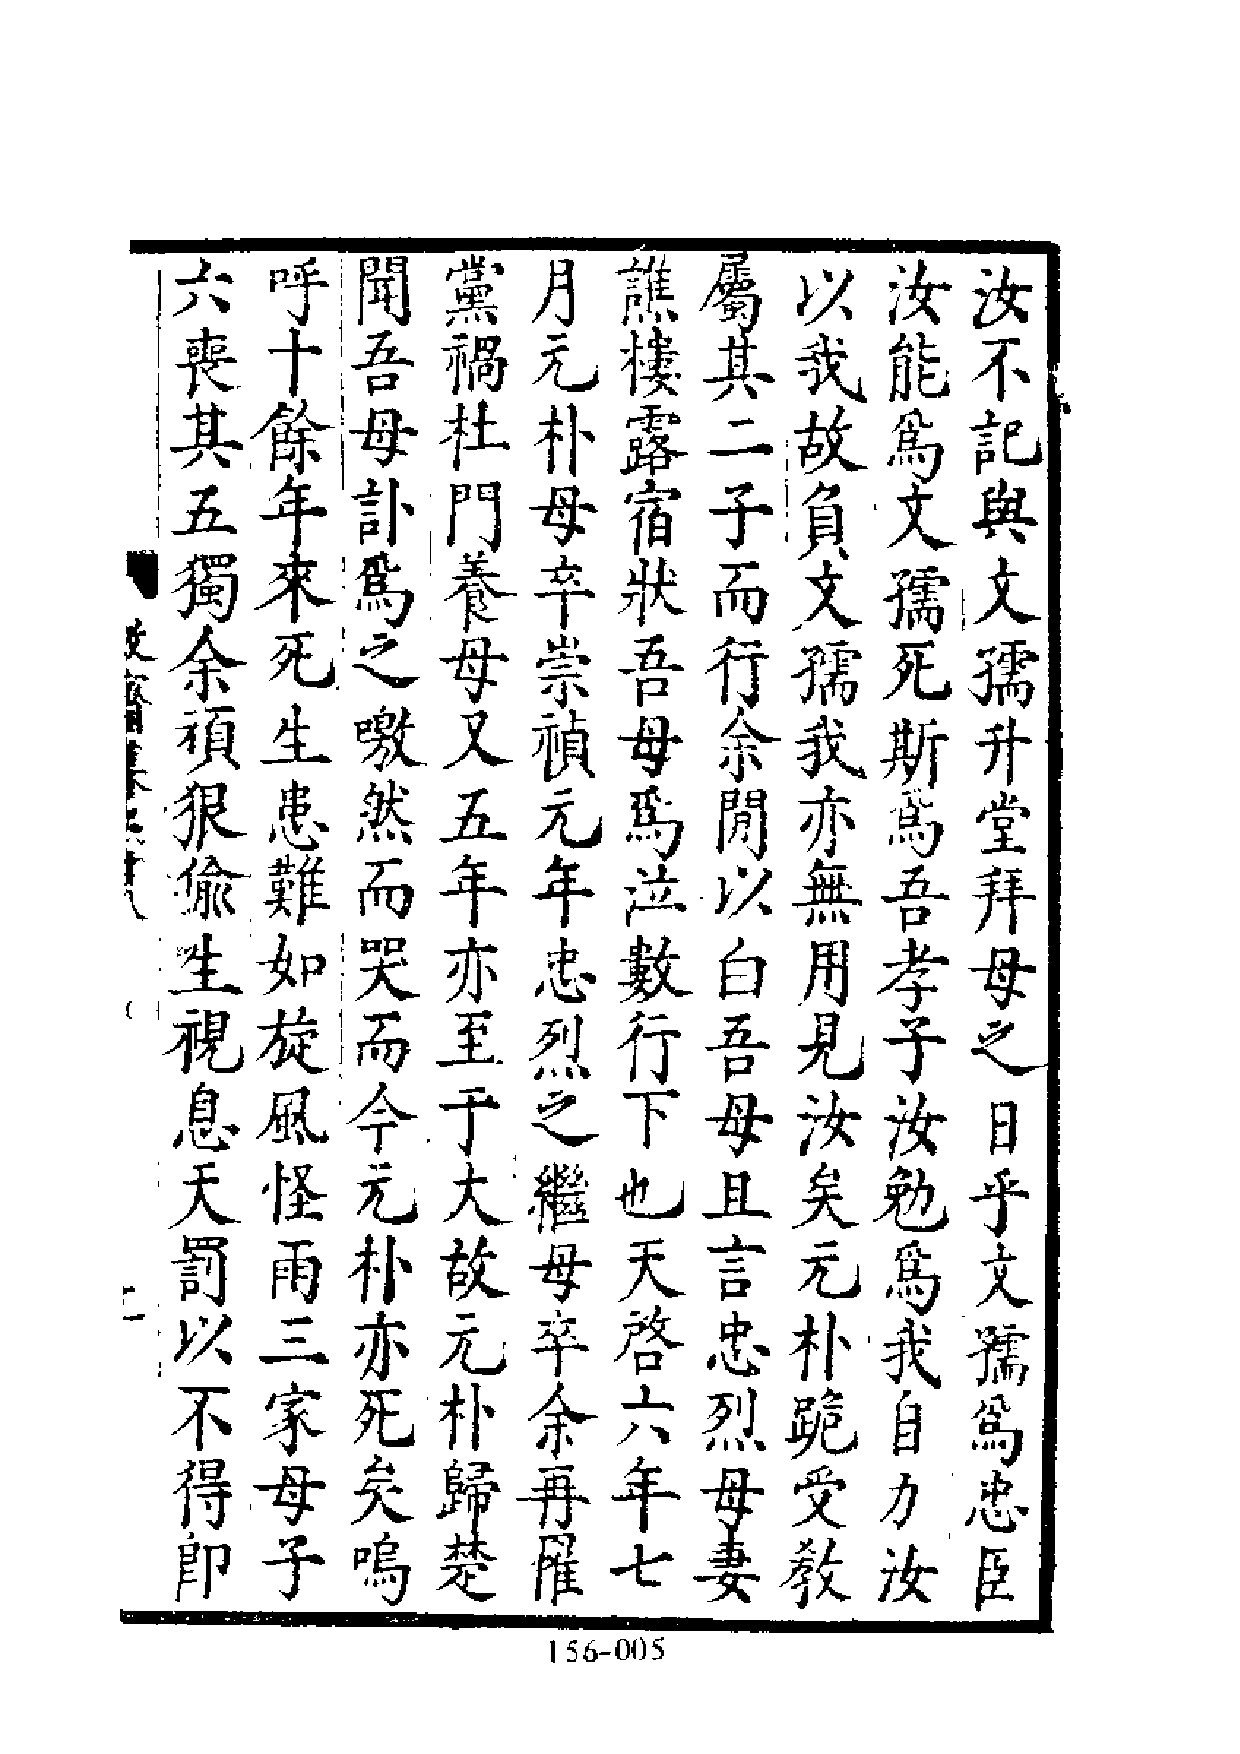 汝不記與文孺升堂拜母之日乎文孺爲忠臣
汝能爲文孺死斯爲吾孝子汝勉爲我自力汝
以我故負文孺我亦無用見汝矣元朴跪受敎
屬其二子而行余閒以白吾母且言忠烈母妻
譙樓露宿狀吾母爲泣數行下也天啓六年七
月元朴母卒崇禎元年忠烈之繼母卒余再罹
黨禍杜門養母又五年亦至于大故元朴歸楚
聞吾母訃爲之噭然而哭而今元朴亦死矣嗚
呼十餘年來死生患難如旋風怪雨三家母子
六喪其五獨余頑狠偸生視息天罰以不得卽
156-005